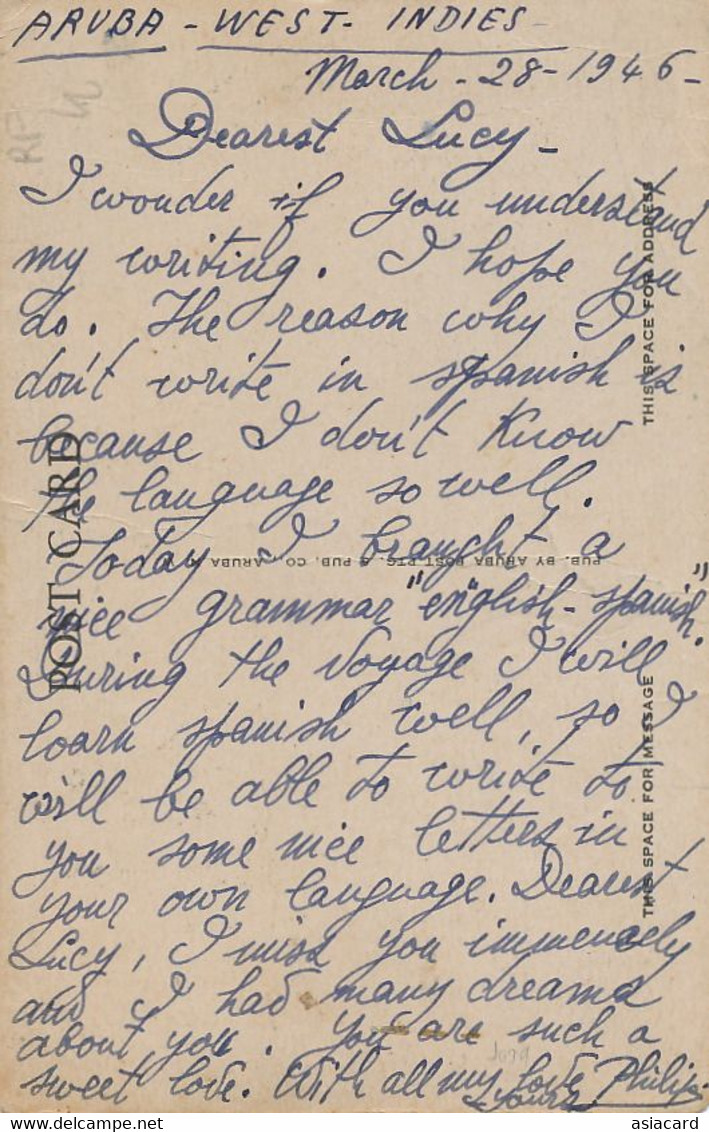 ARUBA - WEST - INDIES -
March - 28 - 1946 -
Dearest Lucy -
I wonder if you understand
my writing. I hope you
do. The reason why I
don't write in spanish is
because I don't know
the language so well.
Today I braught a
nice grammar "english - spanish".
During the voyage I will
learn spanish well, so I
will be able to write to
you some nice letters in
your own language. Dearest
Lucy, I miss you immensely
and I had many dreams
about you. You are such a
sweet love. With all my love
yours Philip
POST CARD
THIS SPACE FOR ADDRESS
THIS SPACE FOR MESSAGE
PUB. BY ARUBA POST PTG. & PUB. CO., ARUBA
asiacard